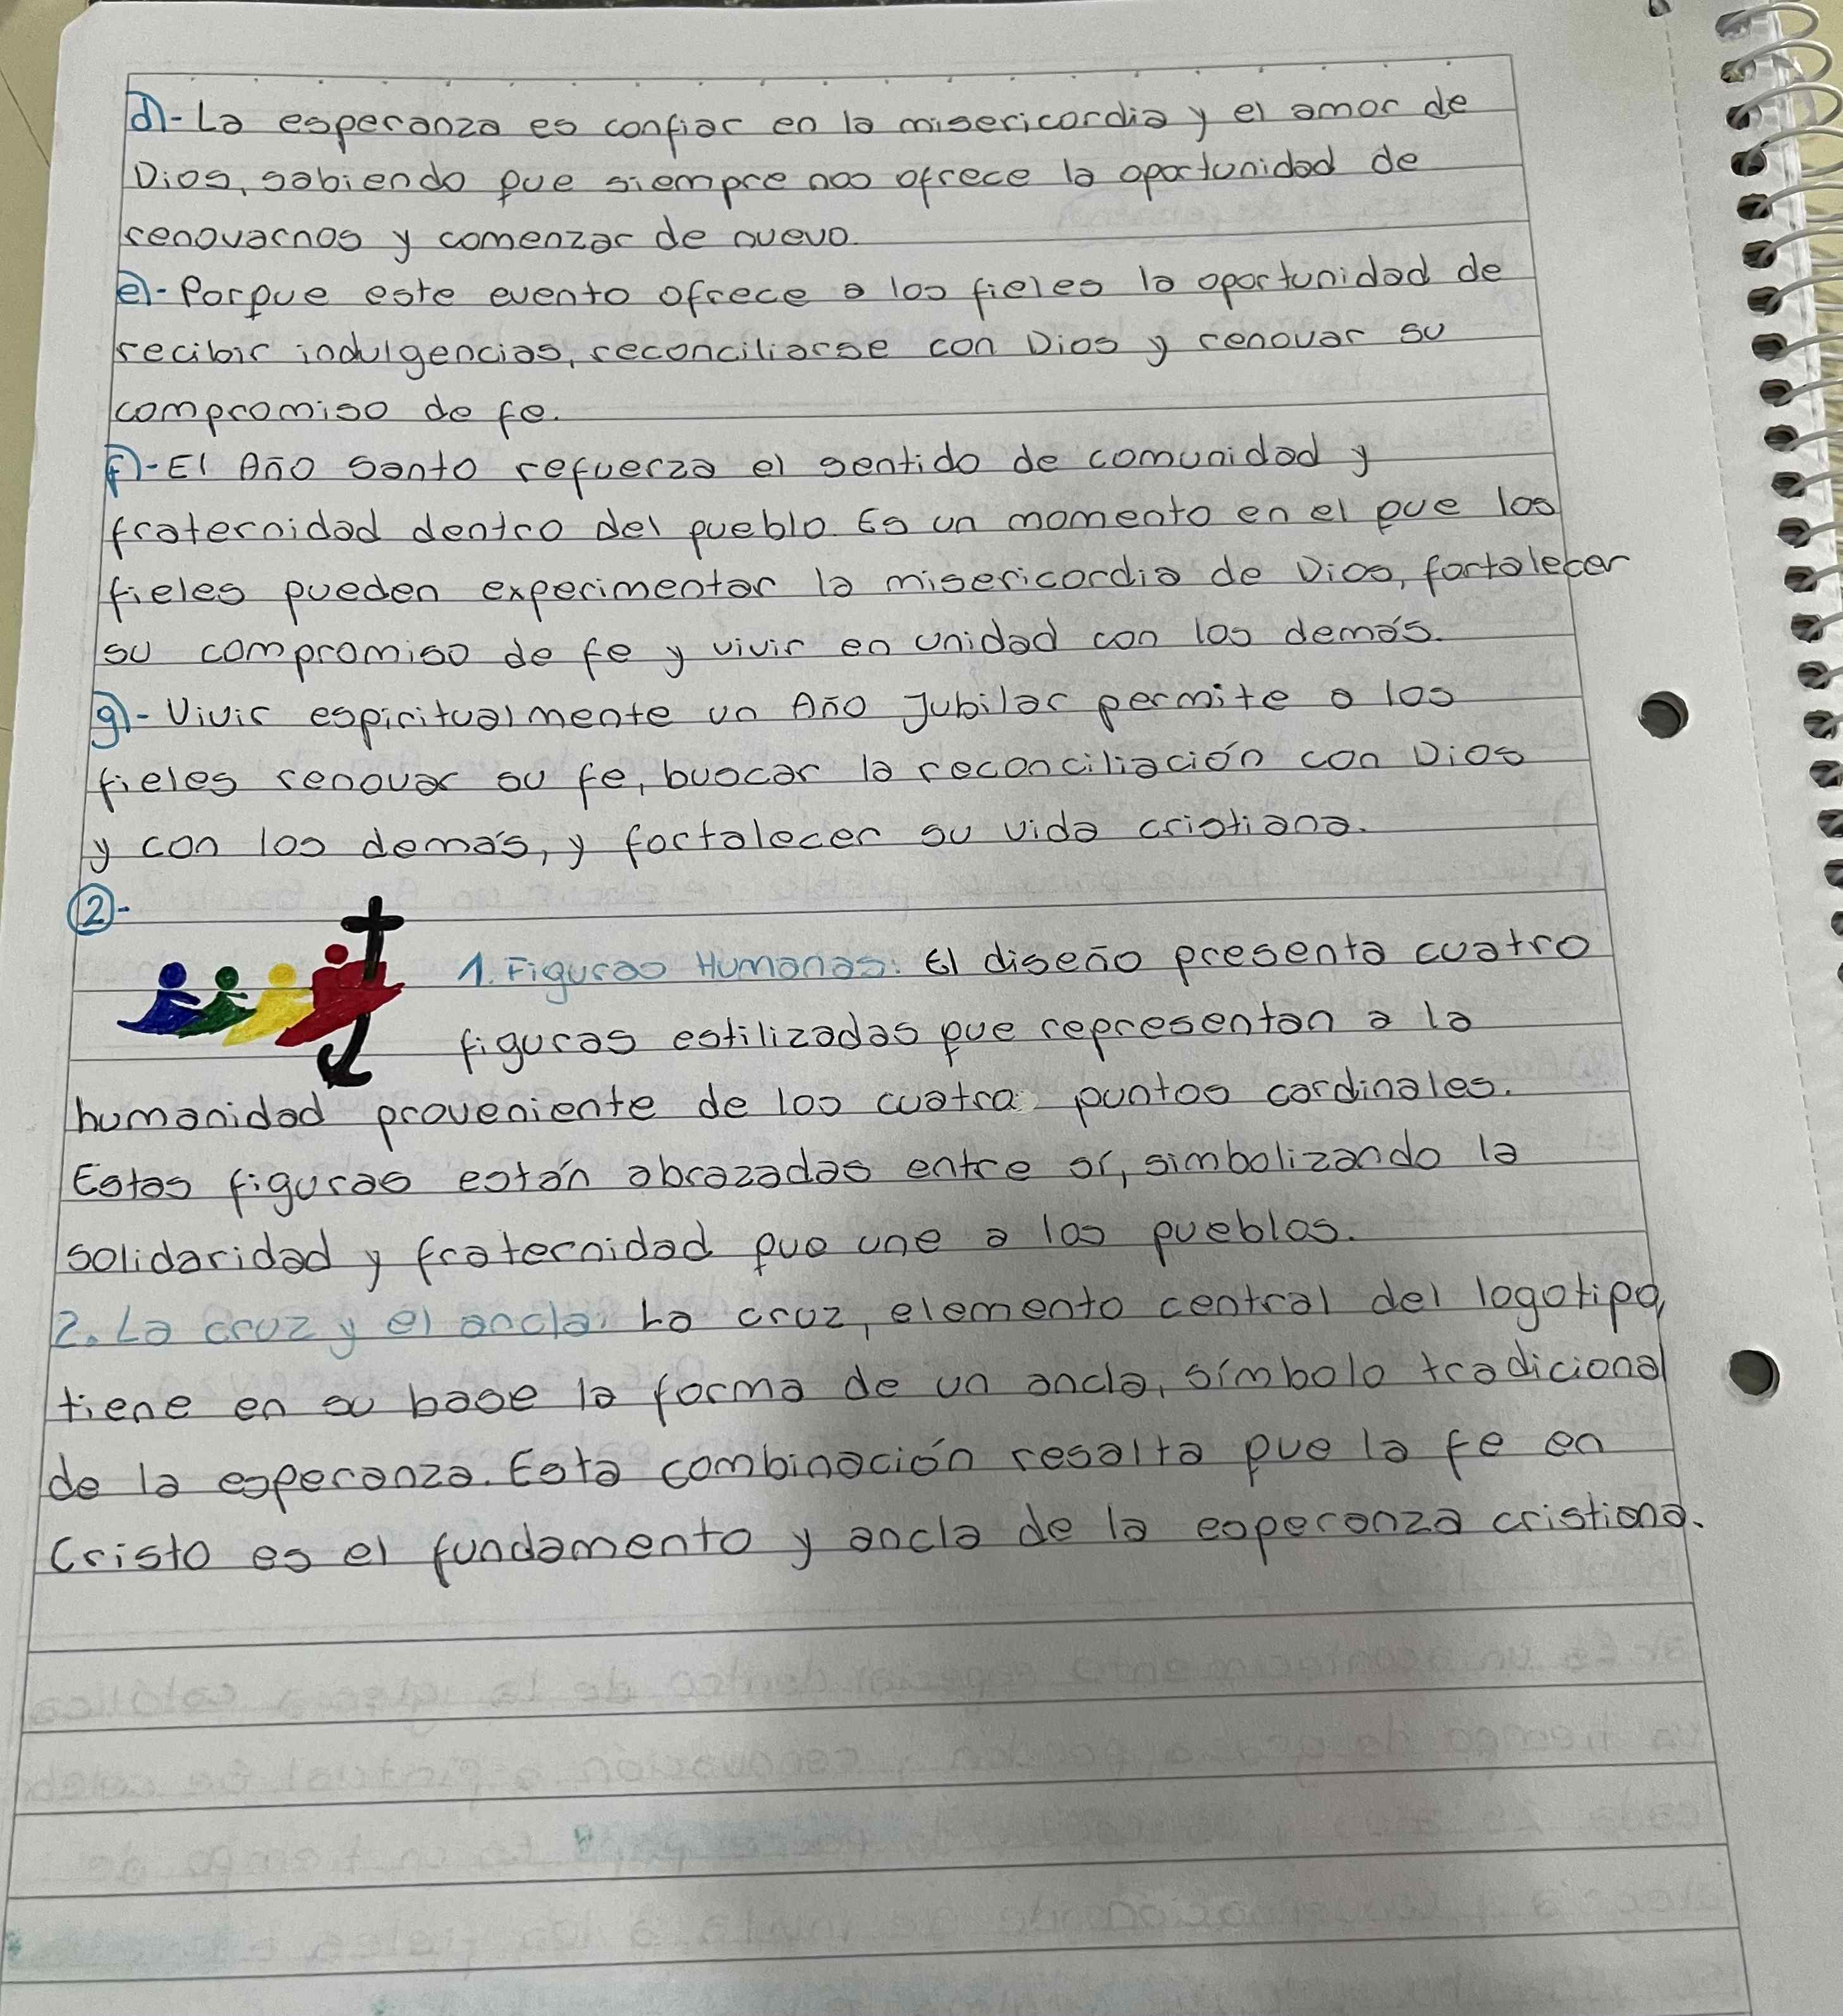 d)- La esperanza es confiar en la misericordia y el amor de
Dios, sabiendo que siempre nos ofrece la oportunidad de
renovarnos y comenzar de nuevo.
e)- Porque este evento ofrece a los fieles la oportunidad de
recibir indulgencias, reconciliarse con Dios y renovar su
compromiso de fe.
f)- El Año Santo refuerza el sentido de comunidad y
fraternidad dentro del pueblo. Es un momento en el que los
fieles pueden experimentar la misericordia de Dios, fortalecer
su compromiso de fe y vivir en unidad con los demás.
g)- Vivir espiritualmente un Año Jubilar permite a los
fieles renovar su fe, buscar la reconciliación con Dios
y con los demás, y fortalecer su vida cristiana.
2-
1. Figuras Humanas: El diseño presenta cuatro
figuras estilizadas que representan a la
humanidad proveniente de los cuatro puntos cardinales.
Estas figuras están abrazadas entre sí, simbolizando la
solidaridad y fraternidad que une a los pueblos.
2. La cruz y el ancla: La cruz, elemento central del logotipo,
tiene en su base la forma de un ancla, símbolo tradicional
de la esperanza. Esta combinación resalta que la fe en
Cristo es el fundamento y ancla de la esperanza cristiana.